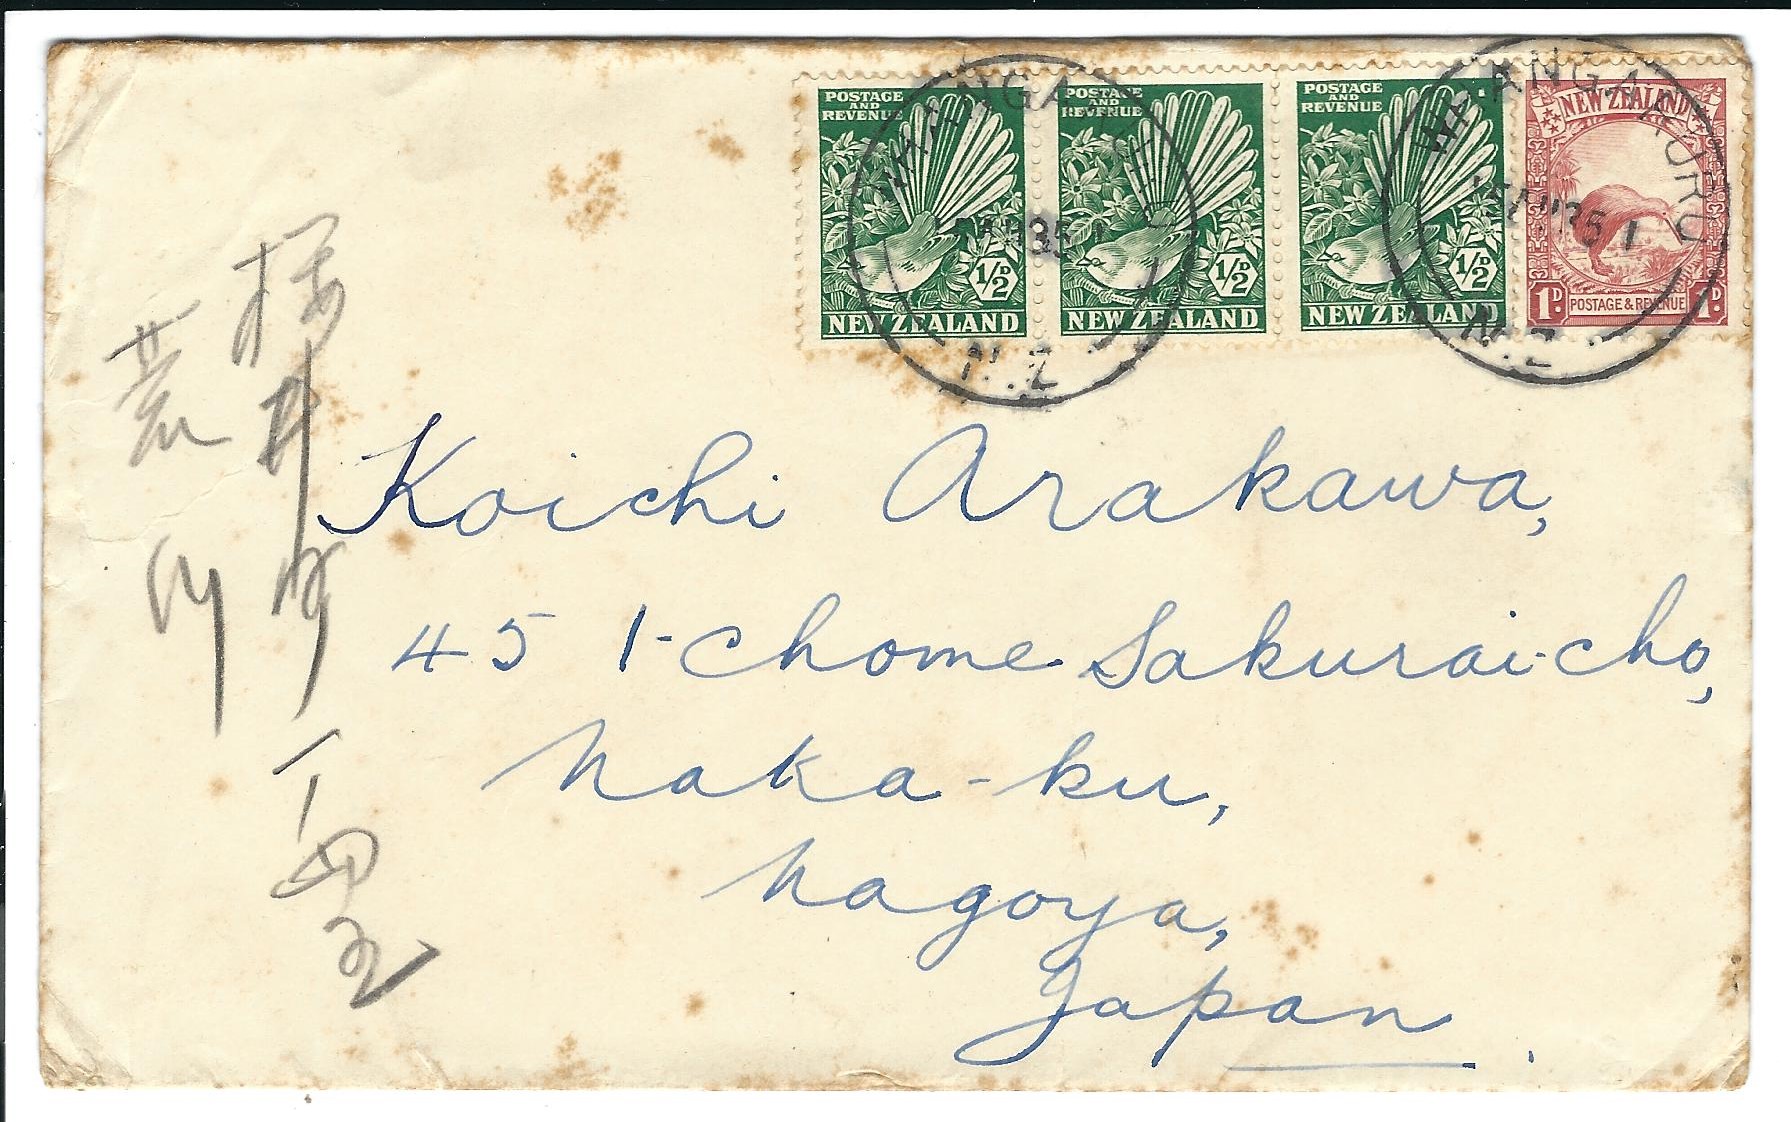 POSTAGE
AND
REVENUE
1/2D
NEW ZEALAND
POSTAGE
AND
REVENUE
1/2D
NEW ZEALAND
POSTAGE
AND
REVENUE
1/2D
NEW ZEALAND
NEW ZEALAND
1D.
POSTAGE & REVENUE
1D.
N.Z
WHANGAAURU
N.Z
Koichi Arakawa,
45 1-chome Sakurai-cho,
Naka-ku,
Nagoya,
Japan.
桜井町一ノ四五
荒川